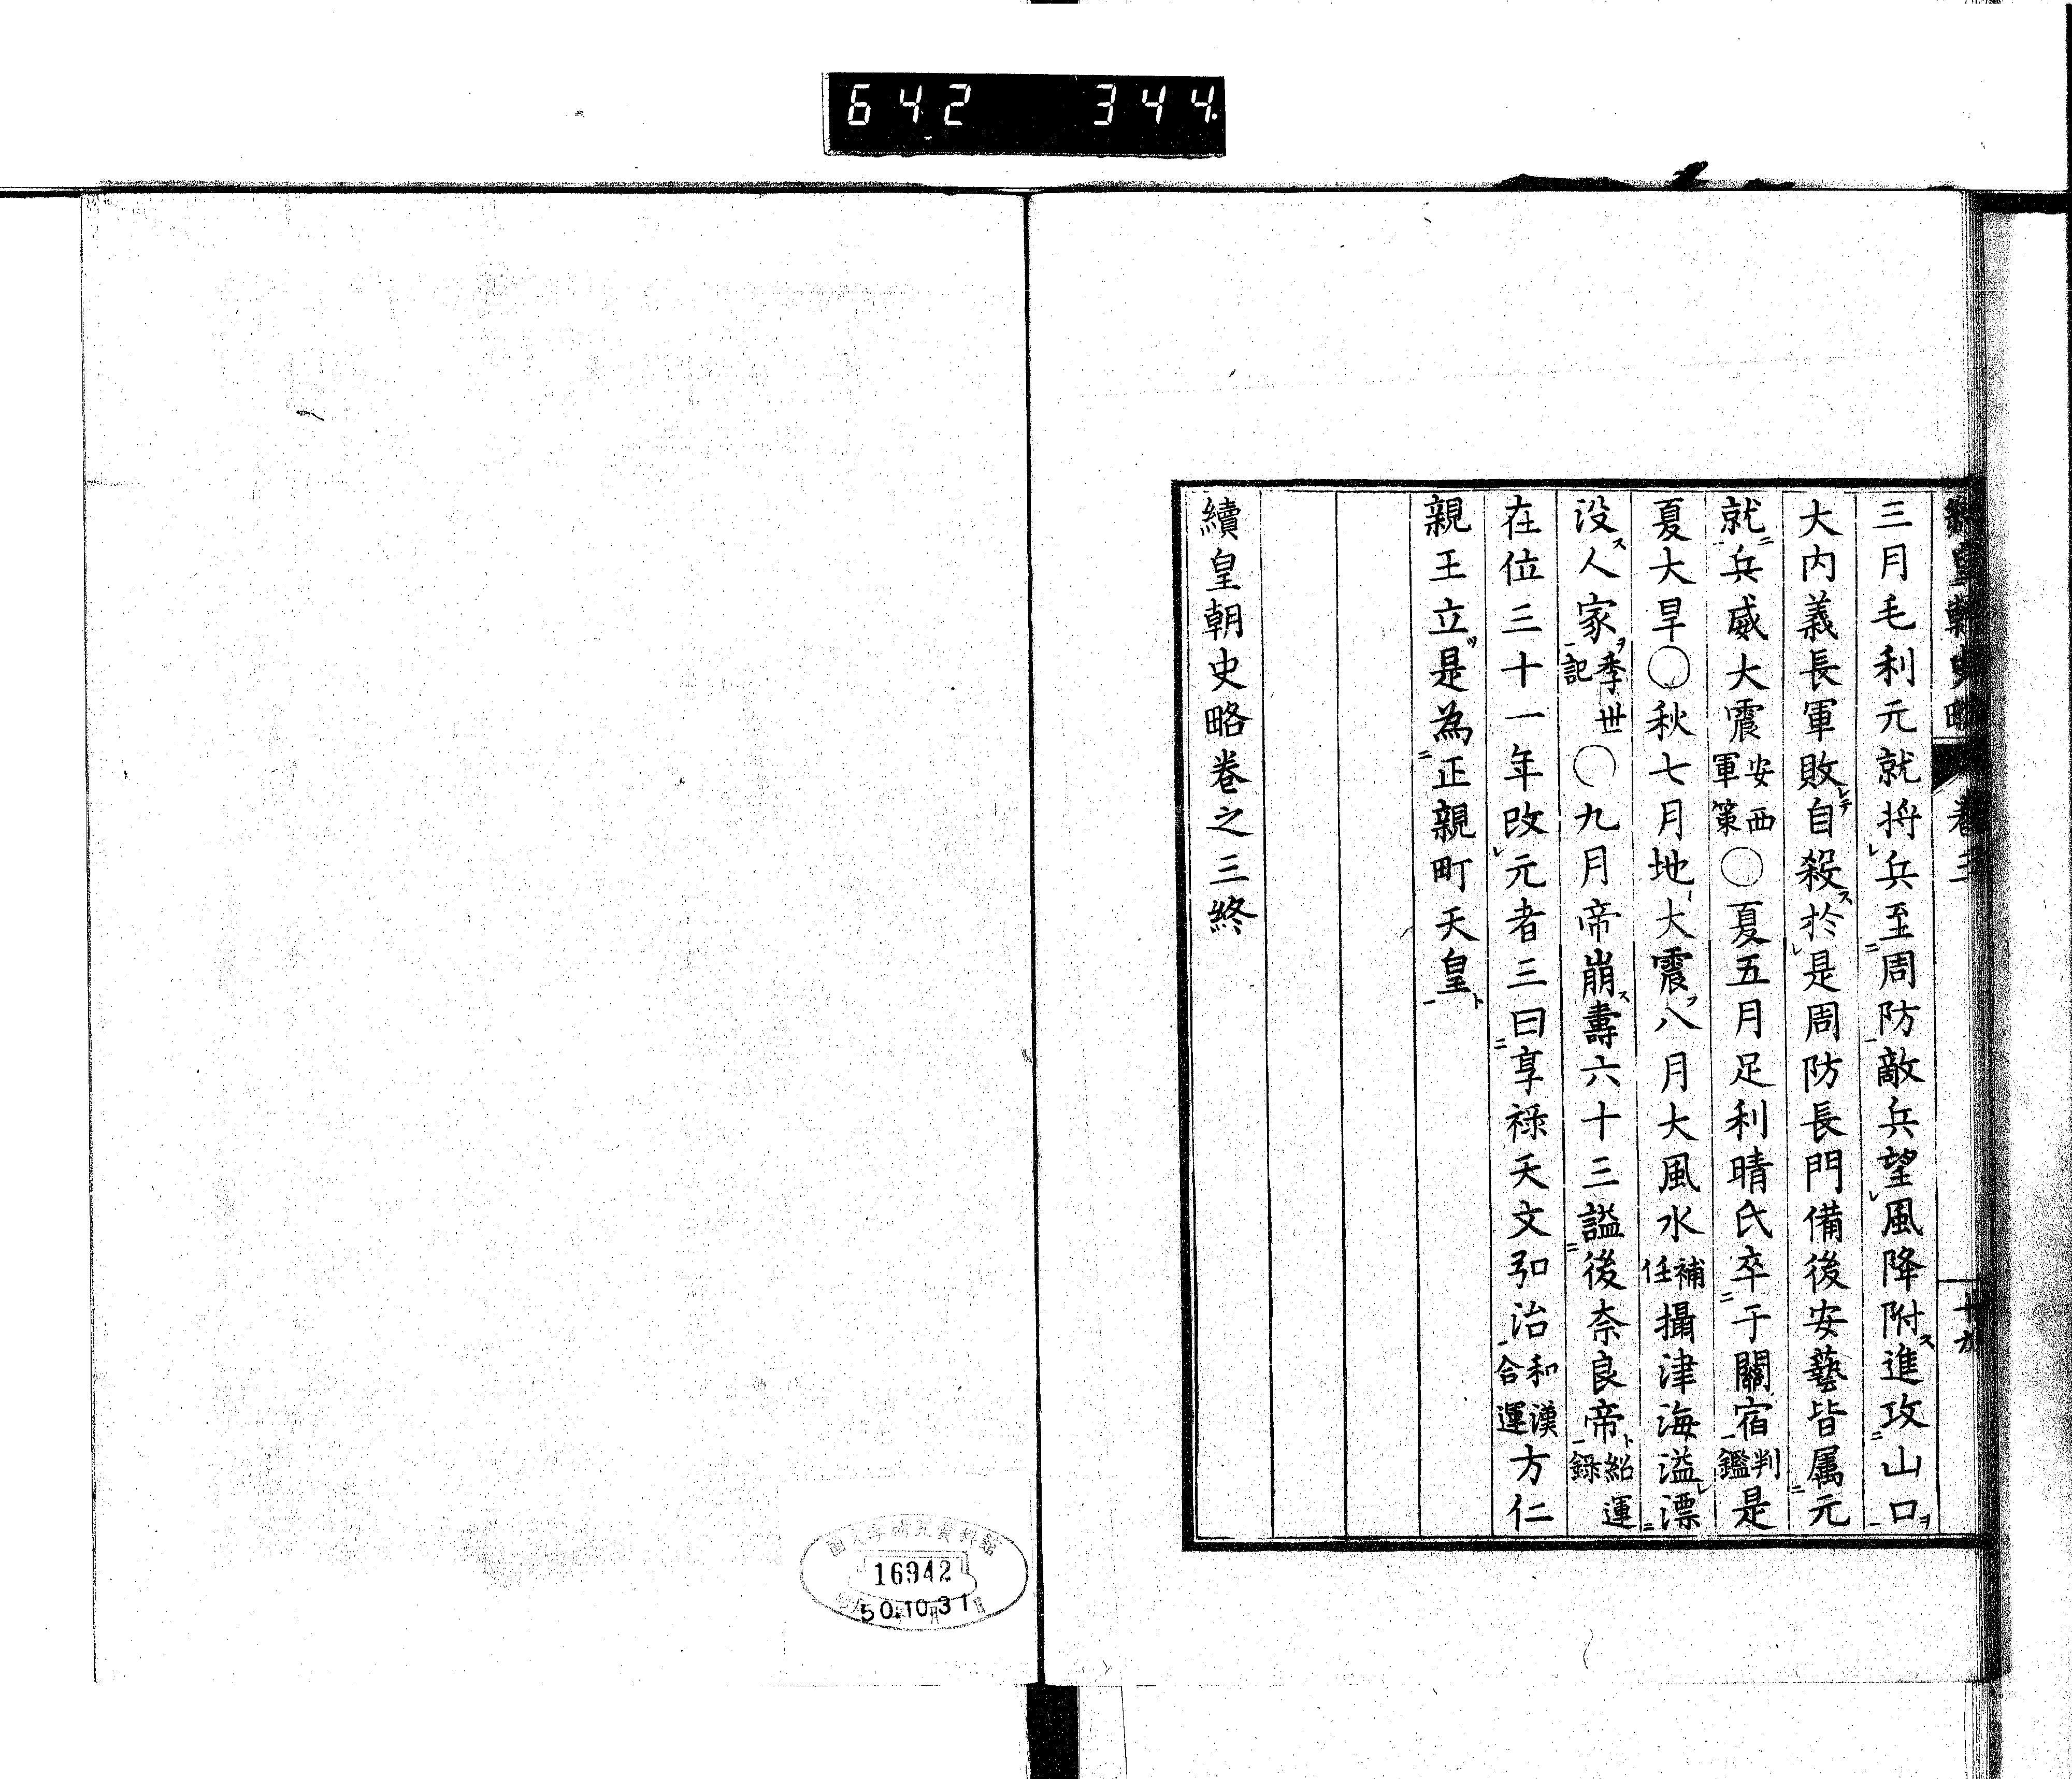 642 344
續皇朝史略 卷三
三月毛利元就将兵至周防敵兵望風降附進攻山口
大内義長軍敗自殺於是周防長門備後安藝皆属元
就兵威大震安西軍策〇夏五月足利晴氏卒于關宿判鑑是
夏大旱〇秋七月地大震八月大風水補任攝津海溢漂
没人家季世記〇九月帝崩壽六十三謚後奈良帝紹運録
在位三十一年改元者三曰享禄天文弘治和漢合運方仁
親王立是為正親町天皇
續皇朝史略卷之三終
16942
50.10.31